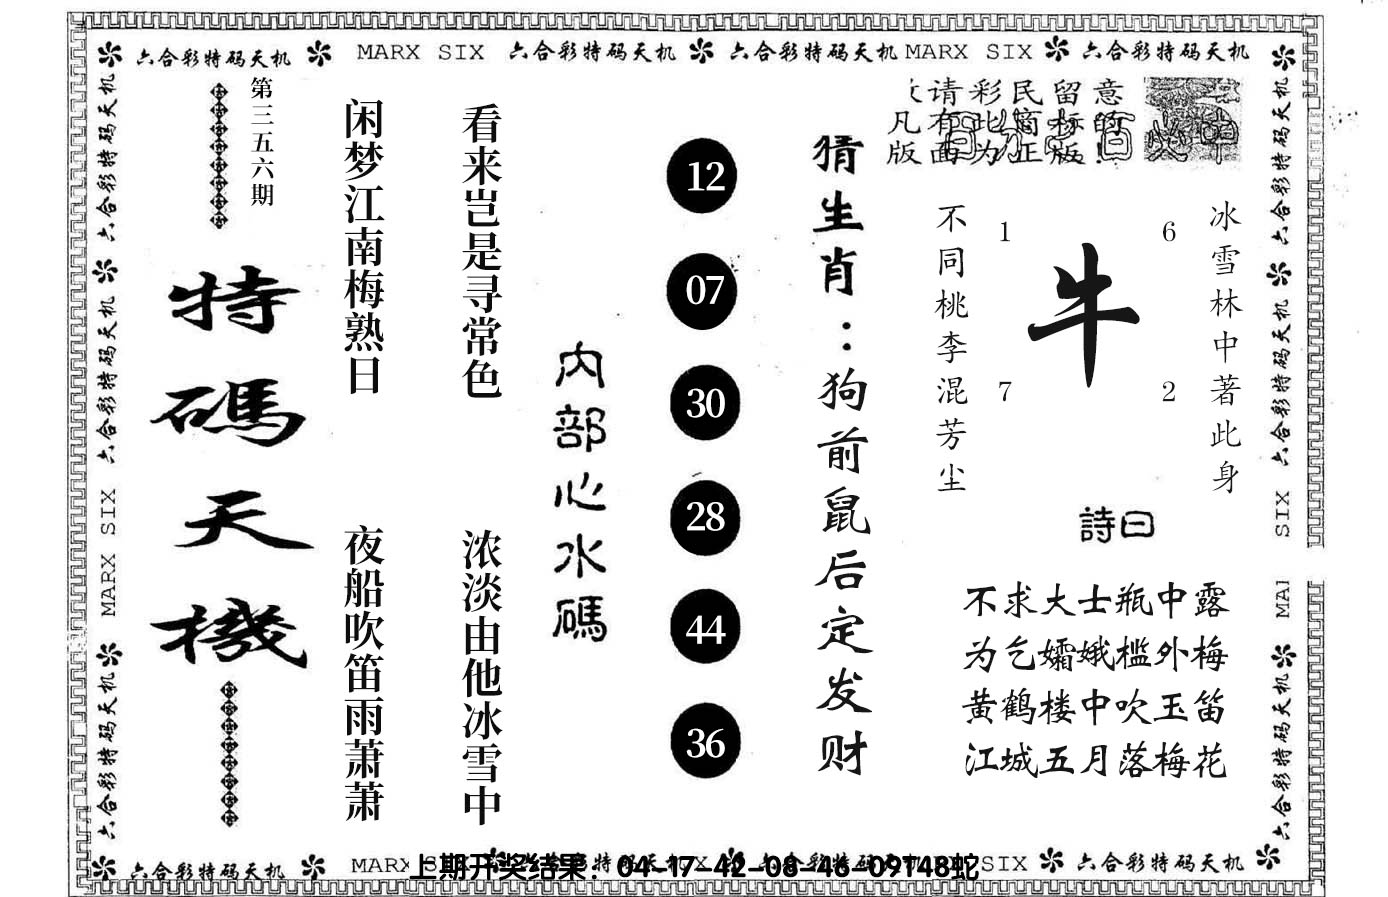 六合彩特码天机 MARX SIX 六合彩特码天机 六合彩特码天机 MARX SIX 六合彩特码天机
第三五六期
特碼天機
闲梦江南梅熟日
夜船吹笛雨萧萧
看来岂是寻常色
浓淡由他冰雪中
内部心水碼
12
07
30
28
44
36
猜生肖：狗前鼠后定发财
请彩民留意
凡有此窗标的
版面为正版!
不同桃李混芳尘
1
6
牛
7
2
冰雪林中著此身
詩曰
不求大士瓶中露
为乞孀娥槛外梅
黄鹤楼中吹玉笛
江城五月落梅花
六合彩特码天机
六合彩特码天机
MARX SIX
六合彩特码天机
六合彩特码天机
六合彩特码天机
SIX
MA
六合彩特码天机
六合彩特码天机 MARX
上期开奖结果：04-17-42-08-46-09T48蛇
SIX 六合彩特码天机